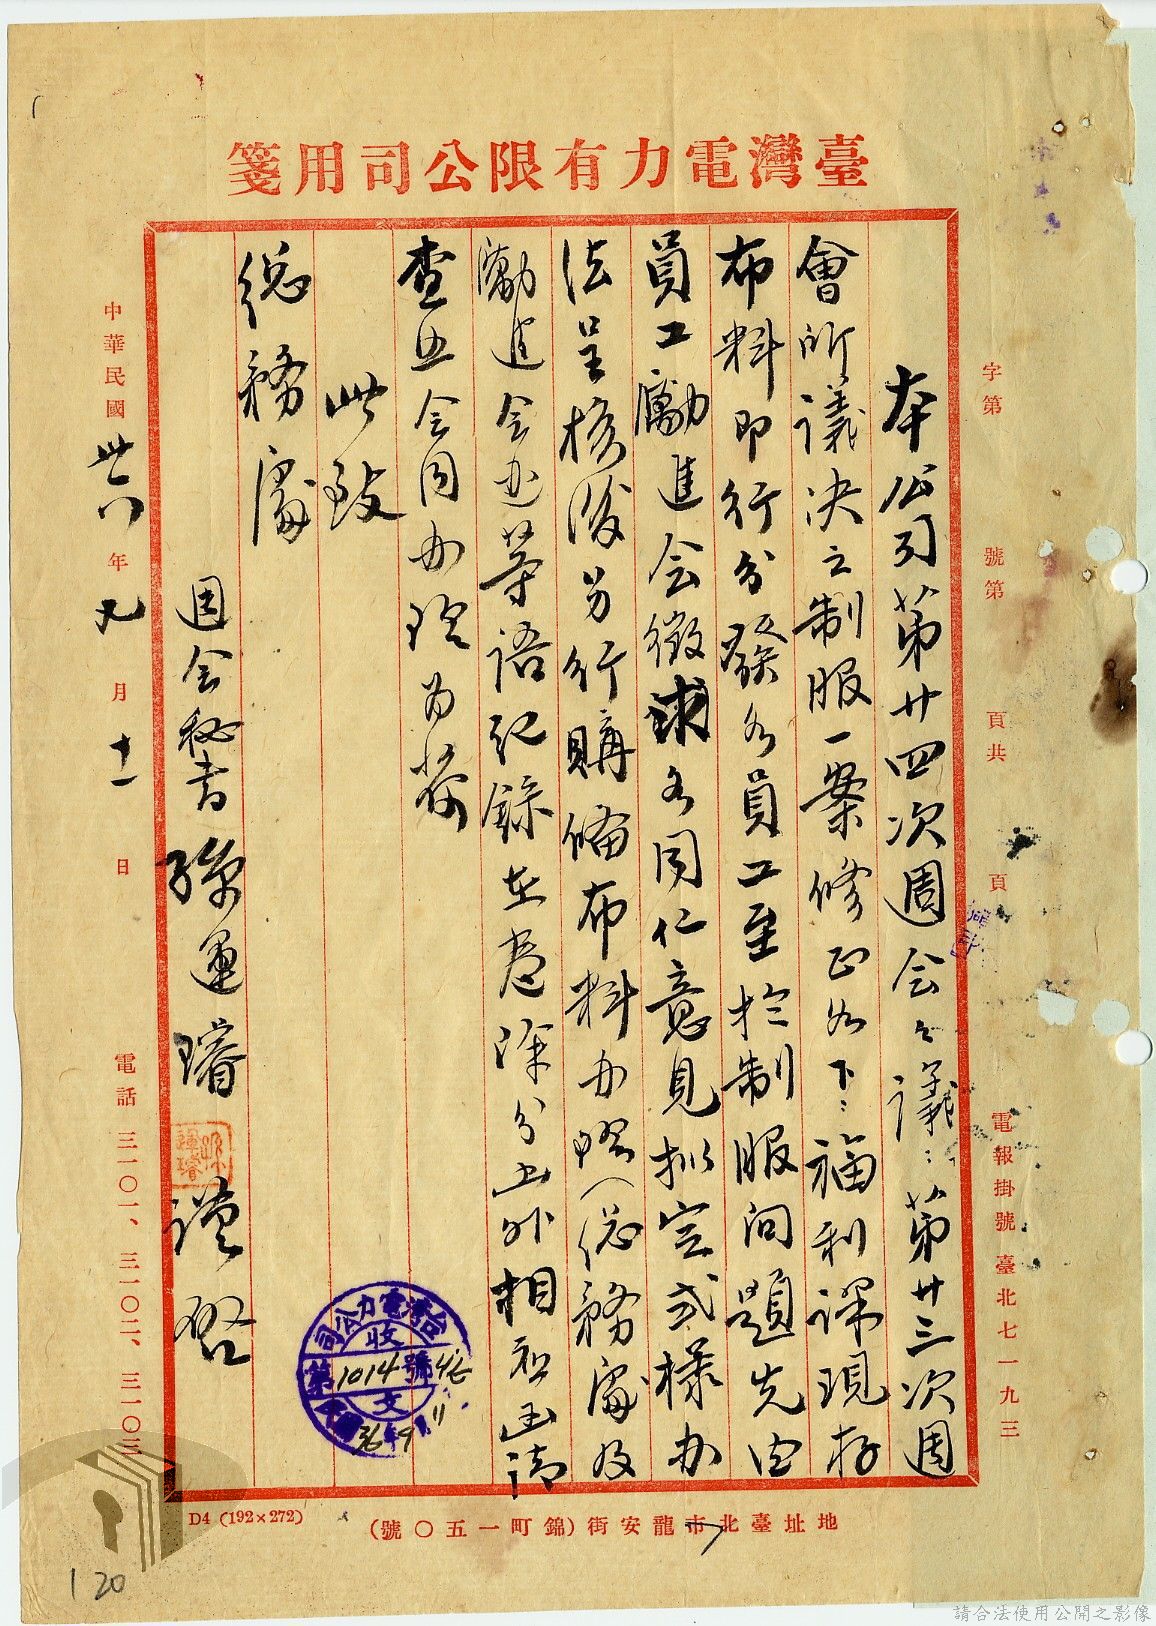 臺灣電力有限公司用箋
字第　號第　頁共　頁
電報掛號臺北七一九三
本公司第廿四次週会会議：第廿三次週
會所議决之制服一案修正如下：福利課現存
布料即行分發各員工至於制服问題先由
員工勵進会徵求各同仁意見拟定式樣办
法呈核後另行購備布料办理（总務處及
勵進会办）等语纪錄在卷除分函外相应函请
查照会同办理为荷
此致
総務處
週会秘書孫運璿謹啓
中華民國卅六年九月十一日
電話三一〇一、三一〇二、三一〇三
地址臺北市龍安街(錦町一五〇號)
D4 (192×272)
台灣電力公司
收文
第1014號
36年9月11
120
請合法使用公開之影像